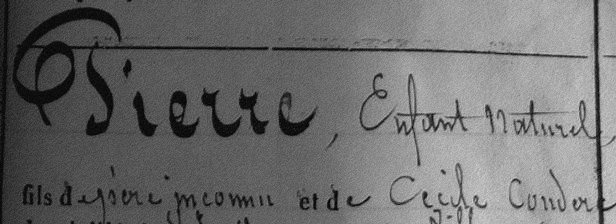 Pierre, Enfant Naturel,
fils de père inconnu et de Cécile